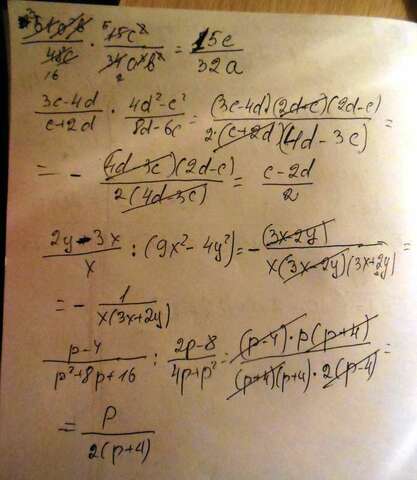 51a²b/48c · 15c²/34a³b² = 15c/32a
(3c-4d)/(c+2d) · (4d²-c²)/(8d-6c) = (3c-4d)(2d-c)(2d-c)/2·(c+2d)(4d-3c) =
= - (4d-3c)(2d-c)/2(4d-3c) = (c-2d)/2
(2y-3x)/x : (9x²-4y²) = - (3x-2y)/x(3x-2y)(3x+2y) =
= - 1/x(3x+2y)
(p-4)/(p²+8p+16) : (2p-8)/(4p+p²) = (p-4)·p(p+4)/(p+4)(p+4)·2(p-4) =
= p/2(p+4)